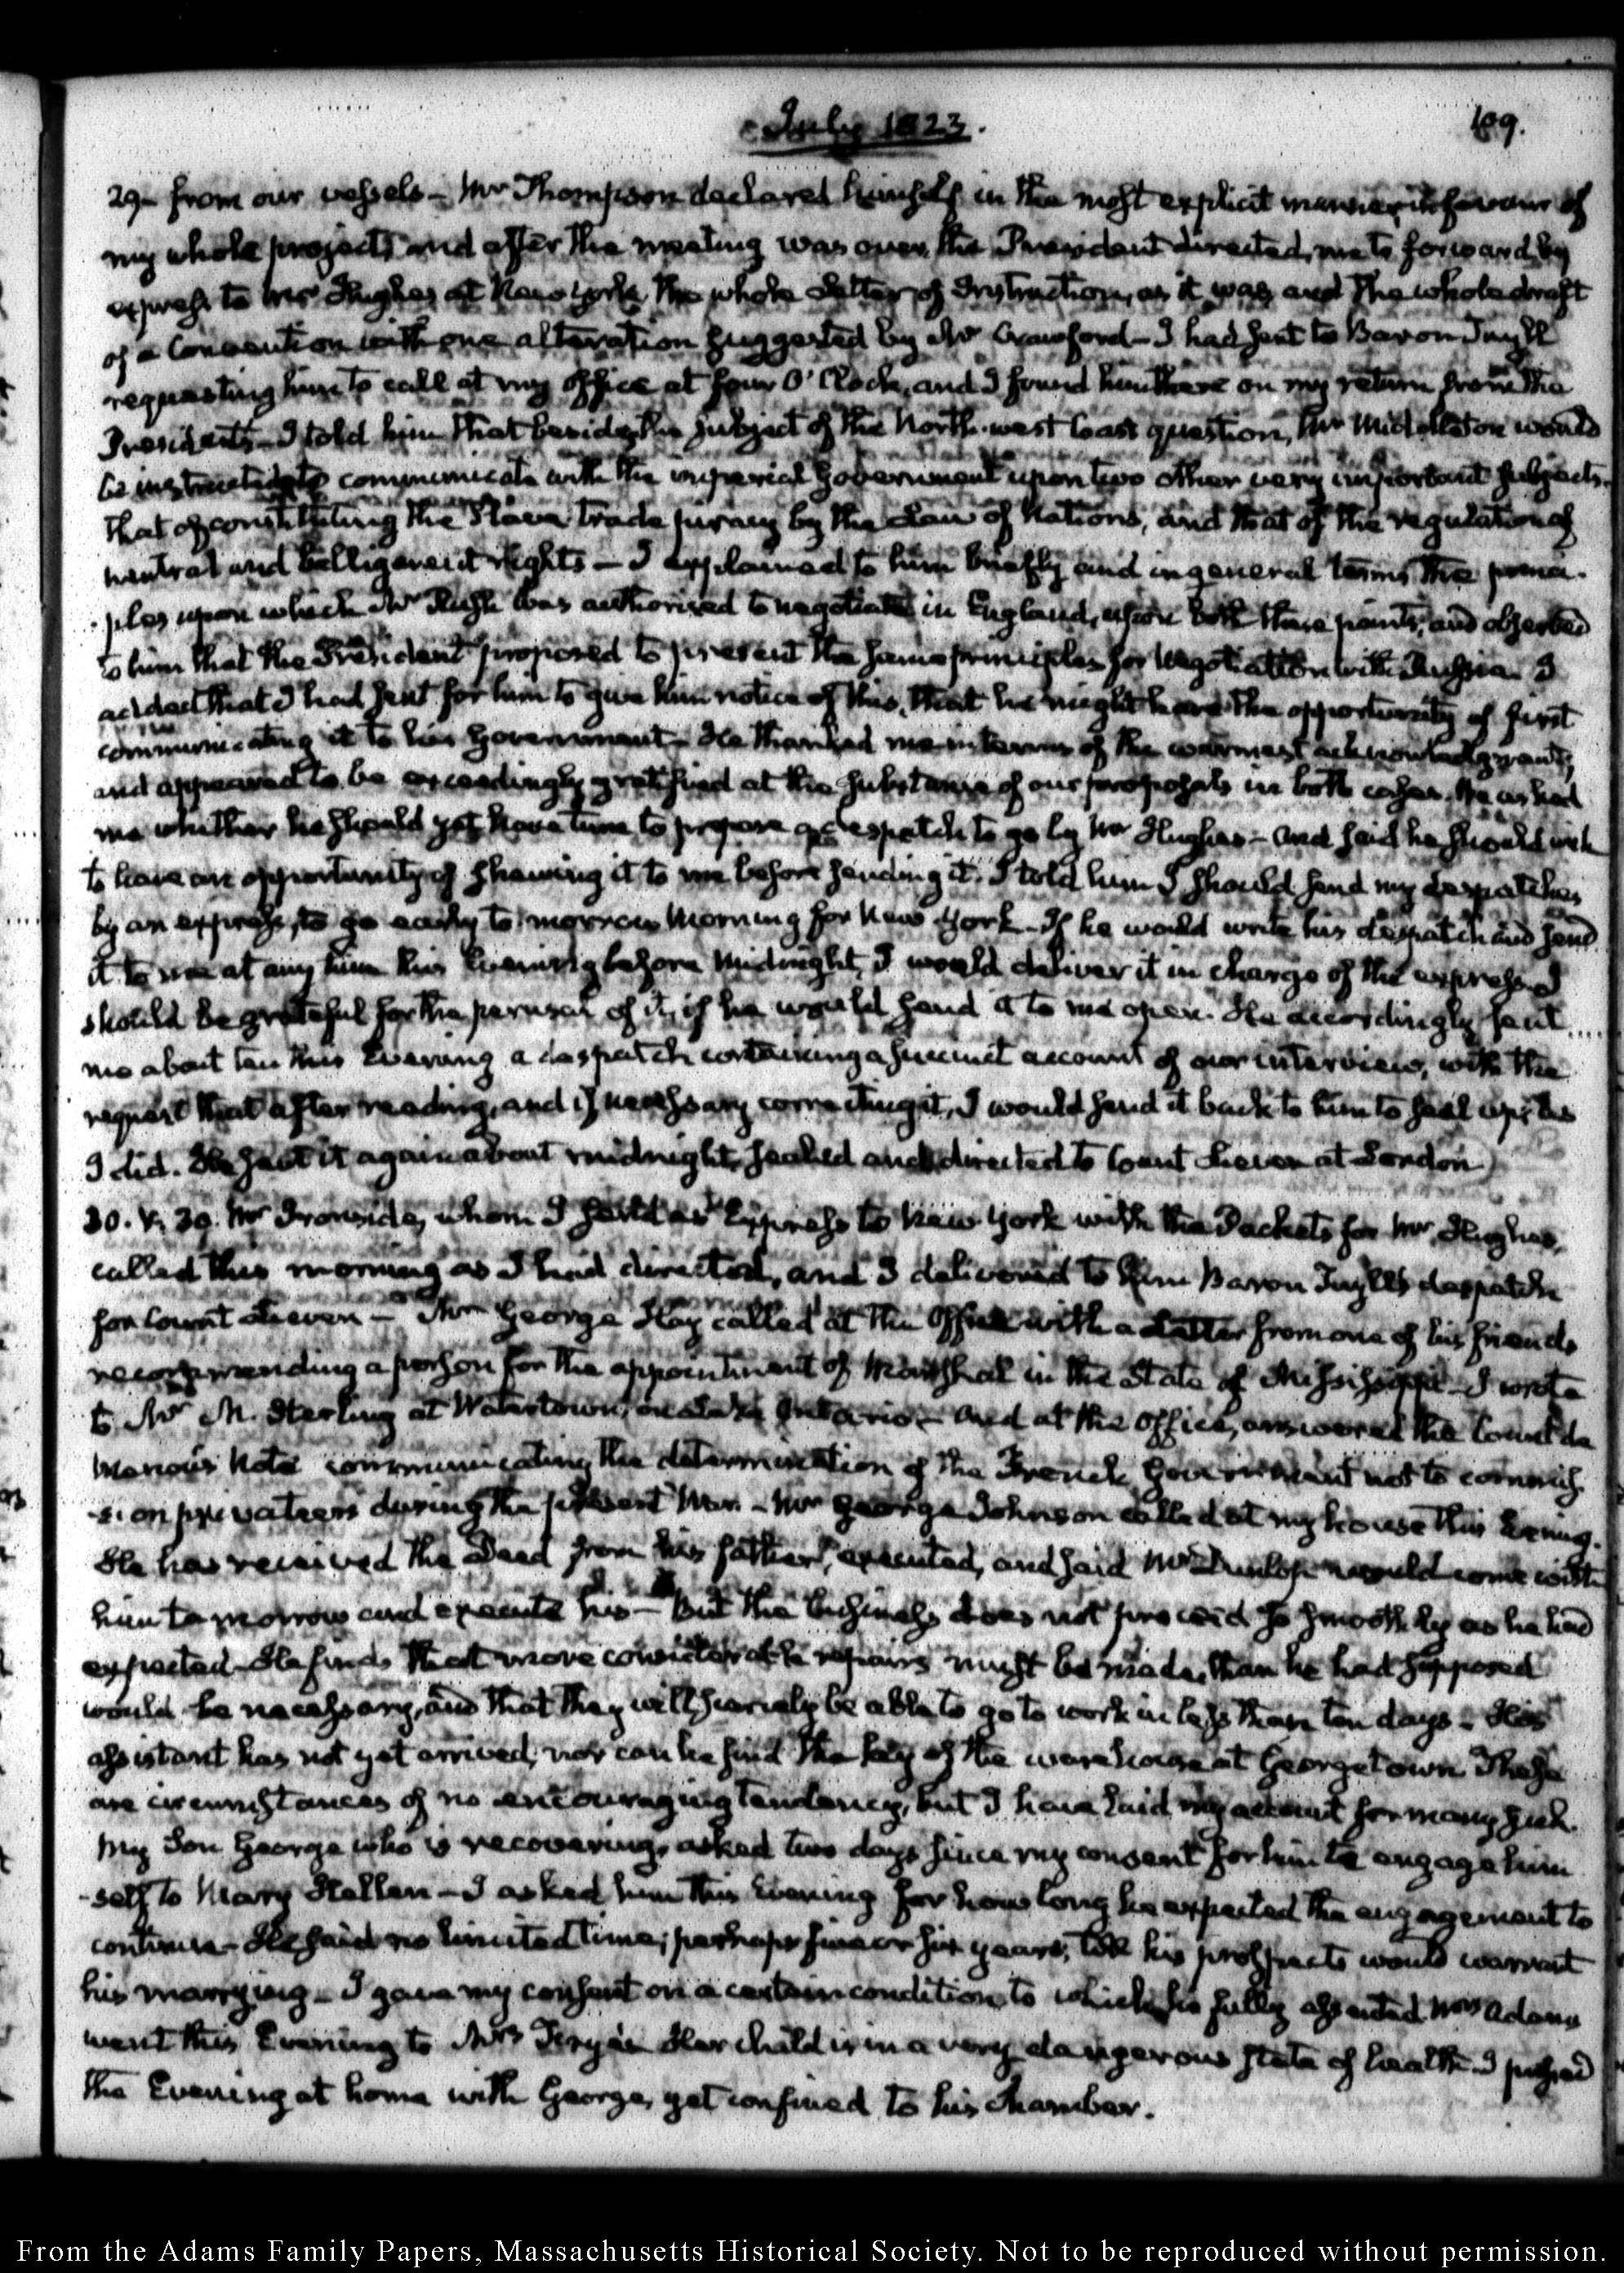 July 1823.
109.
29– from our vessels – Mr Thompson declared himself in the most explicit manner in favour of
my whole project, and after the meeting was over, the President directed me to forward by
express to Mr Hughes at New York, the whole Letter of Instruction, as it was and the whole draft
of a Convention with one alteration suggested by Mr Crawford – I had sent to Baron Tuyll
requesting him to call at my Office at four O'Clock, and I found him there on my return from the
Presidents – I told him that besides the subject of the North-west Coast question, Mr Middleton would
be instructed to communicate with the imperial Government upon two other very important subjects.
that of constituting the Slave trade piracy by the Law of Nations, and that of the regulation of
neutral and belligerent rights – I explained to him briefly and in general terms the princi-
-ples upon which Mr Rush was authorised to negotiate in England, upon both those points, and observed
to him that the President proposed to present the same principles for Negotiation with Russia. I
added that I had sent for him to give him notice of this, that he might have the opportunity of first
communicating it to his Government – He thanked me in terms of the warmest acknowledgment,
and appeared to be exceedingly gratified at the substance of our proposals in both cases. He asked
me whether he should yet have time to prepare a despatch to go by Mr Hughes – and said he should wish
to have an opportunity of shewing it to me before sending it. I told him I should send my despatches
by an express, to go early to-morrow Morning for New York – If he would write his despatch and send
it to me at any time this Evening before Midnight, I would deliver it in charge of the express. I
should be grateful for the perusal of it, if he would send it to me open. He accordingly sent
me about ten this Evening a despatch containing a succinct account of our interview, with the
request that after reading, and if necessary correcting it, I would send it back to him to seal up; as
I did. He sent it again about midnight, sealed and directed to Count Lieven at London
30. V. 30. Mr Ironside, whom I send as Express to New York with the Packets for Mr Hughes,
called this morning as I had directed, and I delivered to him Baron Tuyll's despatch
for Count Lieven – Mr George Hay called at the Office with a Letter from one of his friends
recommending a person for the appointment of Marshal in the State of Mississippi – I wrote
to Mr M. Sterling at Watertown, on Lake Ontario – and at the Office, answered the Count de
Menou's Note communicating the determination of the French Government not to commis-
-sion privateers during the present War – Mr George Johnson called at my house this Evening.
He has received the Deed from his father, executed, and said Mr Dunlop would come with
him to-morrow and execute his – But the business does not proceed so smoothly as he had
expected – He finds that more considerable repairs must be made, than he had supposed
would be necessary, and that they will scarcely be able to go to work in less than ten days – His
assistant has not yet arrived, nor can he find the key of the warehouse at Georgetown. These
are circumstances of no encouraging tendency, but I have laid my account for many such.
My Son George who is recovering, asked two days since my consent for him to engage him
-self to Mary Hellen – I asked him this Evening for how long he expected the engagement to
continue – He said no limited time; perhaps five or six years; till his prospects would warrant
his marrying – I gave my consent on a certain condition, to which he fully assented. Mrs Adams
went this Evening to Mrs Frye's. Her child is in a very dangerous state of health. I passed
the Evening at home with George, yet confined to his Chamber.
From the Adams Family Papers, Massachusetts Historical Society. Not to be reproduced without permission.